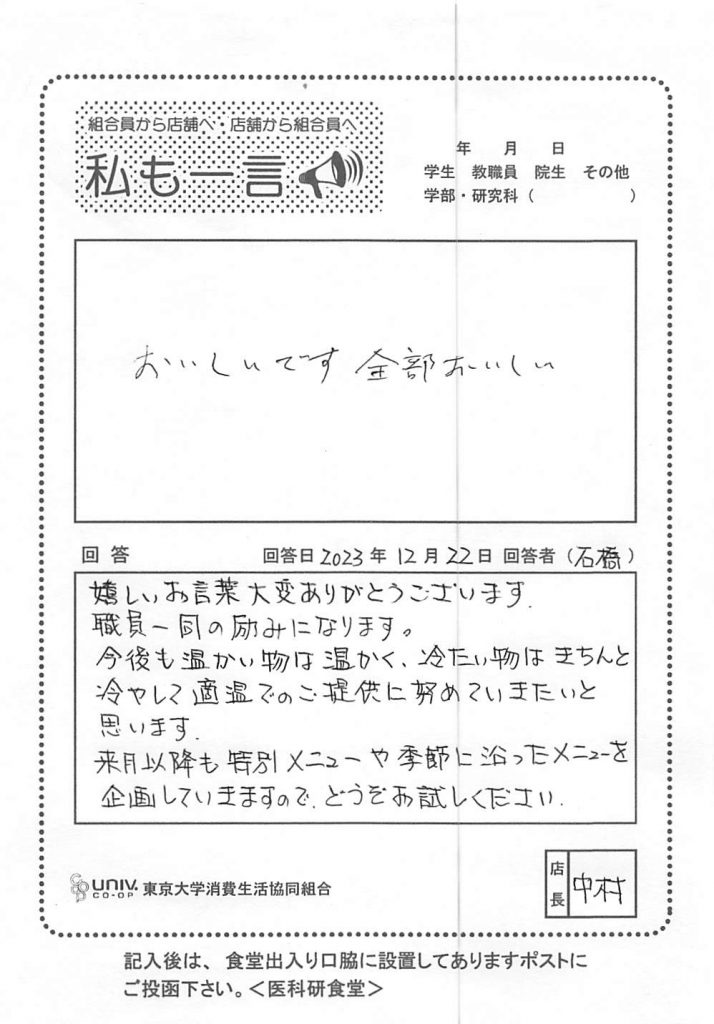 組合員から店舗へ・店舗から組合員へ
私も一言
年 月 日
学生 教職員 院生 その他
学部・研究科（ ）
おいしいです 全部おいしい
回答 回答日 2023 年 12 月 22 日 回答者（石橋）
嬉しいお言葉大変ありがとうございます.
職員一同の励みになります。
今後も温かい物は温かく、冷たい物はきちんと
冷やして適温でのご提供に努めていきたいと
思います.
来月以降も特別メニューや季節に沿ったメニューを
企画していきますので、どうぞお試しください.
UNIV. CO-OP 東京大学消費生活協同組合
店長 中村
記入後は、食堂出入り口脇に設置してありますポストに
ご投函下さい。＜医科研食堂＞